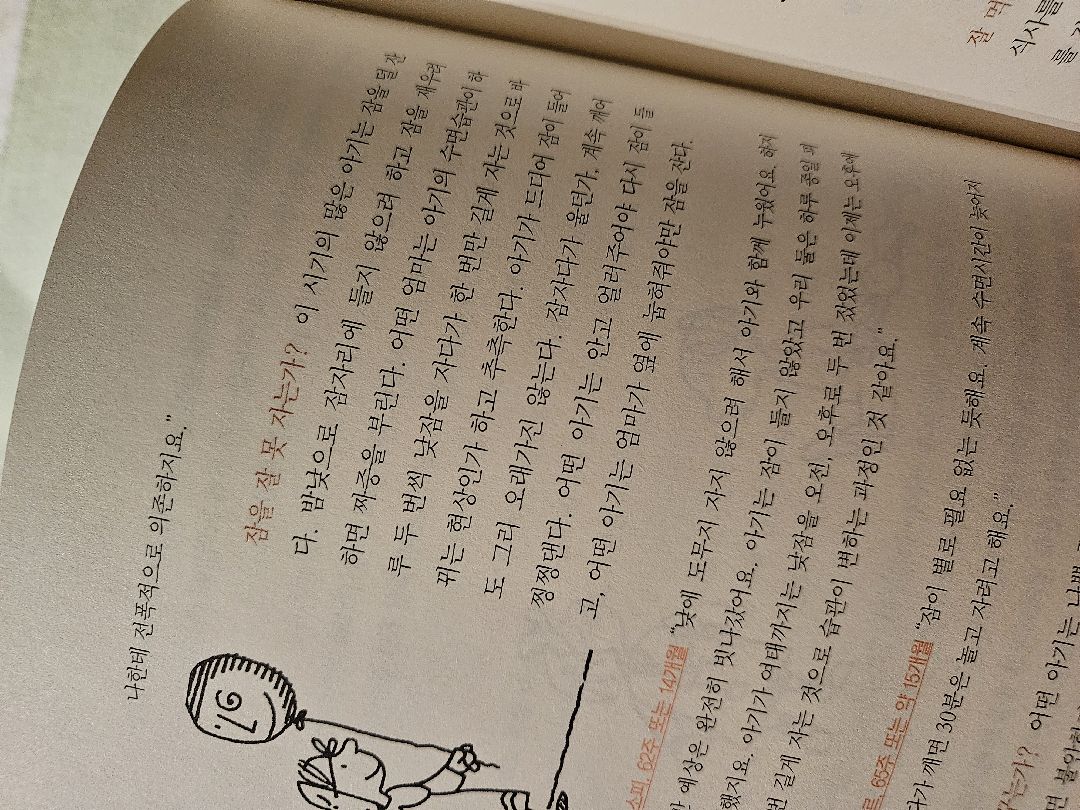 나한테 전폭적으로 의존하지요."
잠을 잘 못 자는가? 이 시기의 많은 아기는 잠을 덜 잔
다. 밤낮으로 잠자리에 들지 않으려 하고 잠을 재우려
하면 짜증을 부린다. 어떤 엄마는 아기의 수면습관이 하
루 두 번씩 낮잠을 자다가 한 번만 길게 자는 것으로 바
뀌는 현상인가 하고 추측한다. 아기가 드디어 잠이 들어
도 그리 오래가진 않는다. 잠자다가 울던가, 계속 깨어
찡찡댄다. 어떤 아기는 안고 얼러주어야 다시 잠이 들
고, 어떤 아기는 엄마가 옆에 눕혀줘야만 잠을 잔다.
소피, 62주 또는 14개월 "낮에 도무지 자지 않으려 해서 아기와 함께 누웠어요. 하지
만 예상은 완전히 빗나갔어요. 아기는 잠이 들지 않았고 우리 둘은 하루 종일
했지요. 아기가 여태까지는 낮잠을 오전, 오후로 두 번 잤었는데 이제는 오후에
번 길게 자는 것으로 습관이 변하는 과정인 것 같아요."
65주 또는 약 15개월 "잠이 별로 필요 없는 듯해요. 계속 수면시간이 늦어지
깨면 30분은 놀고 자려고 해요."
는가? 어떤 아기는
잘 먹
식사를